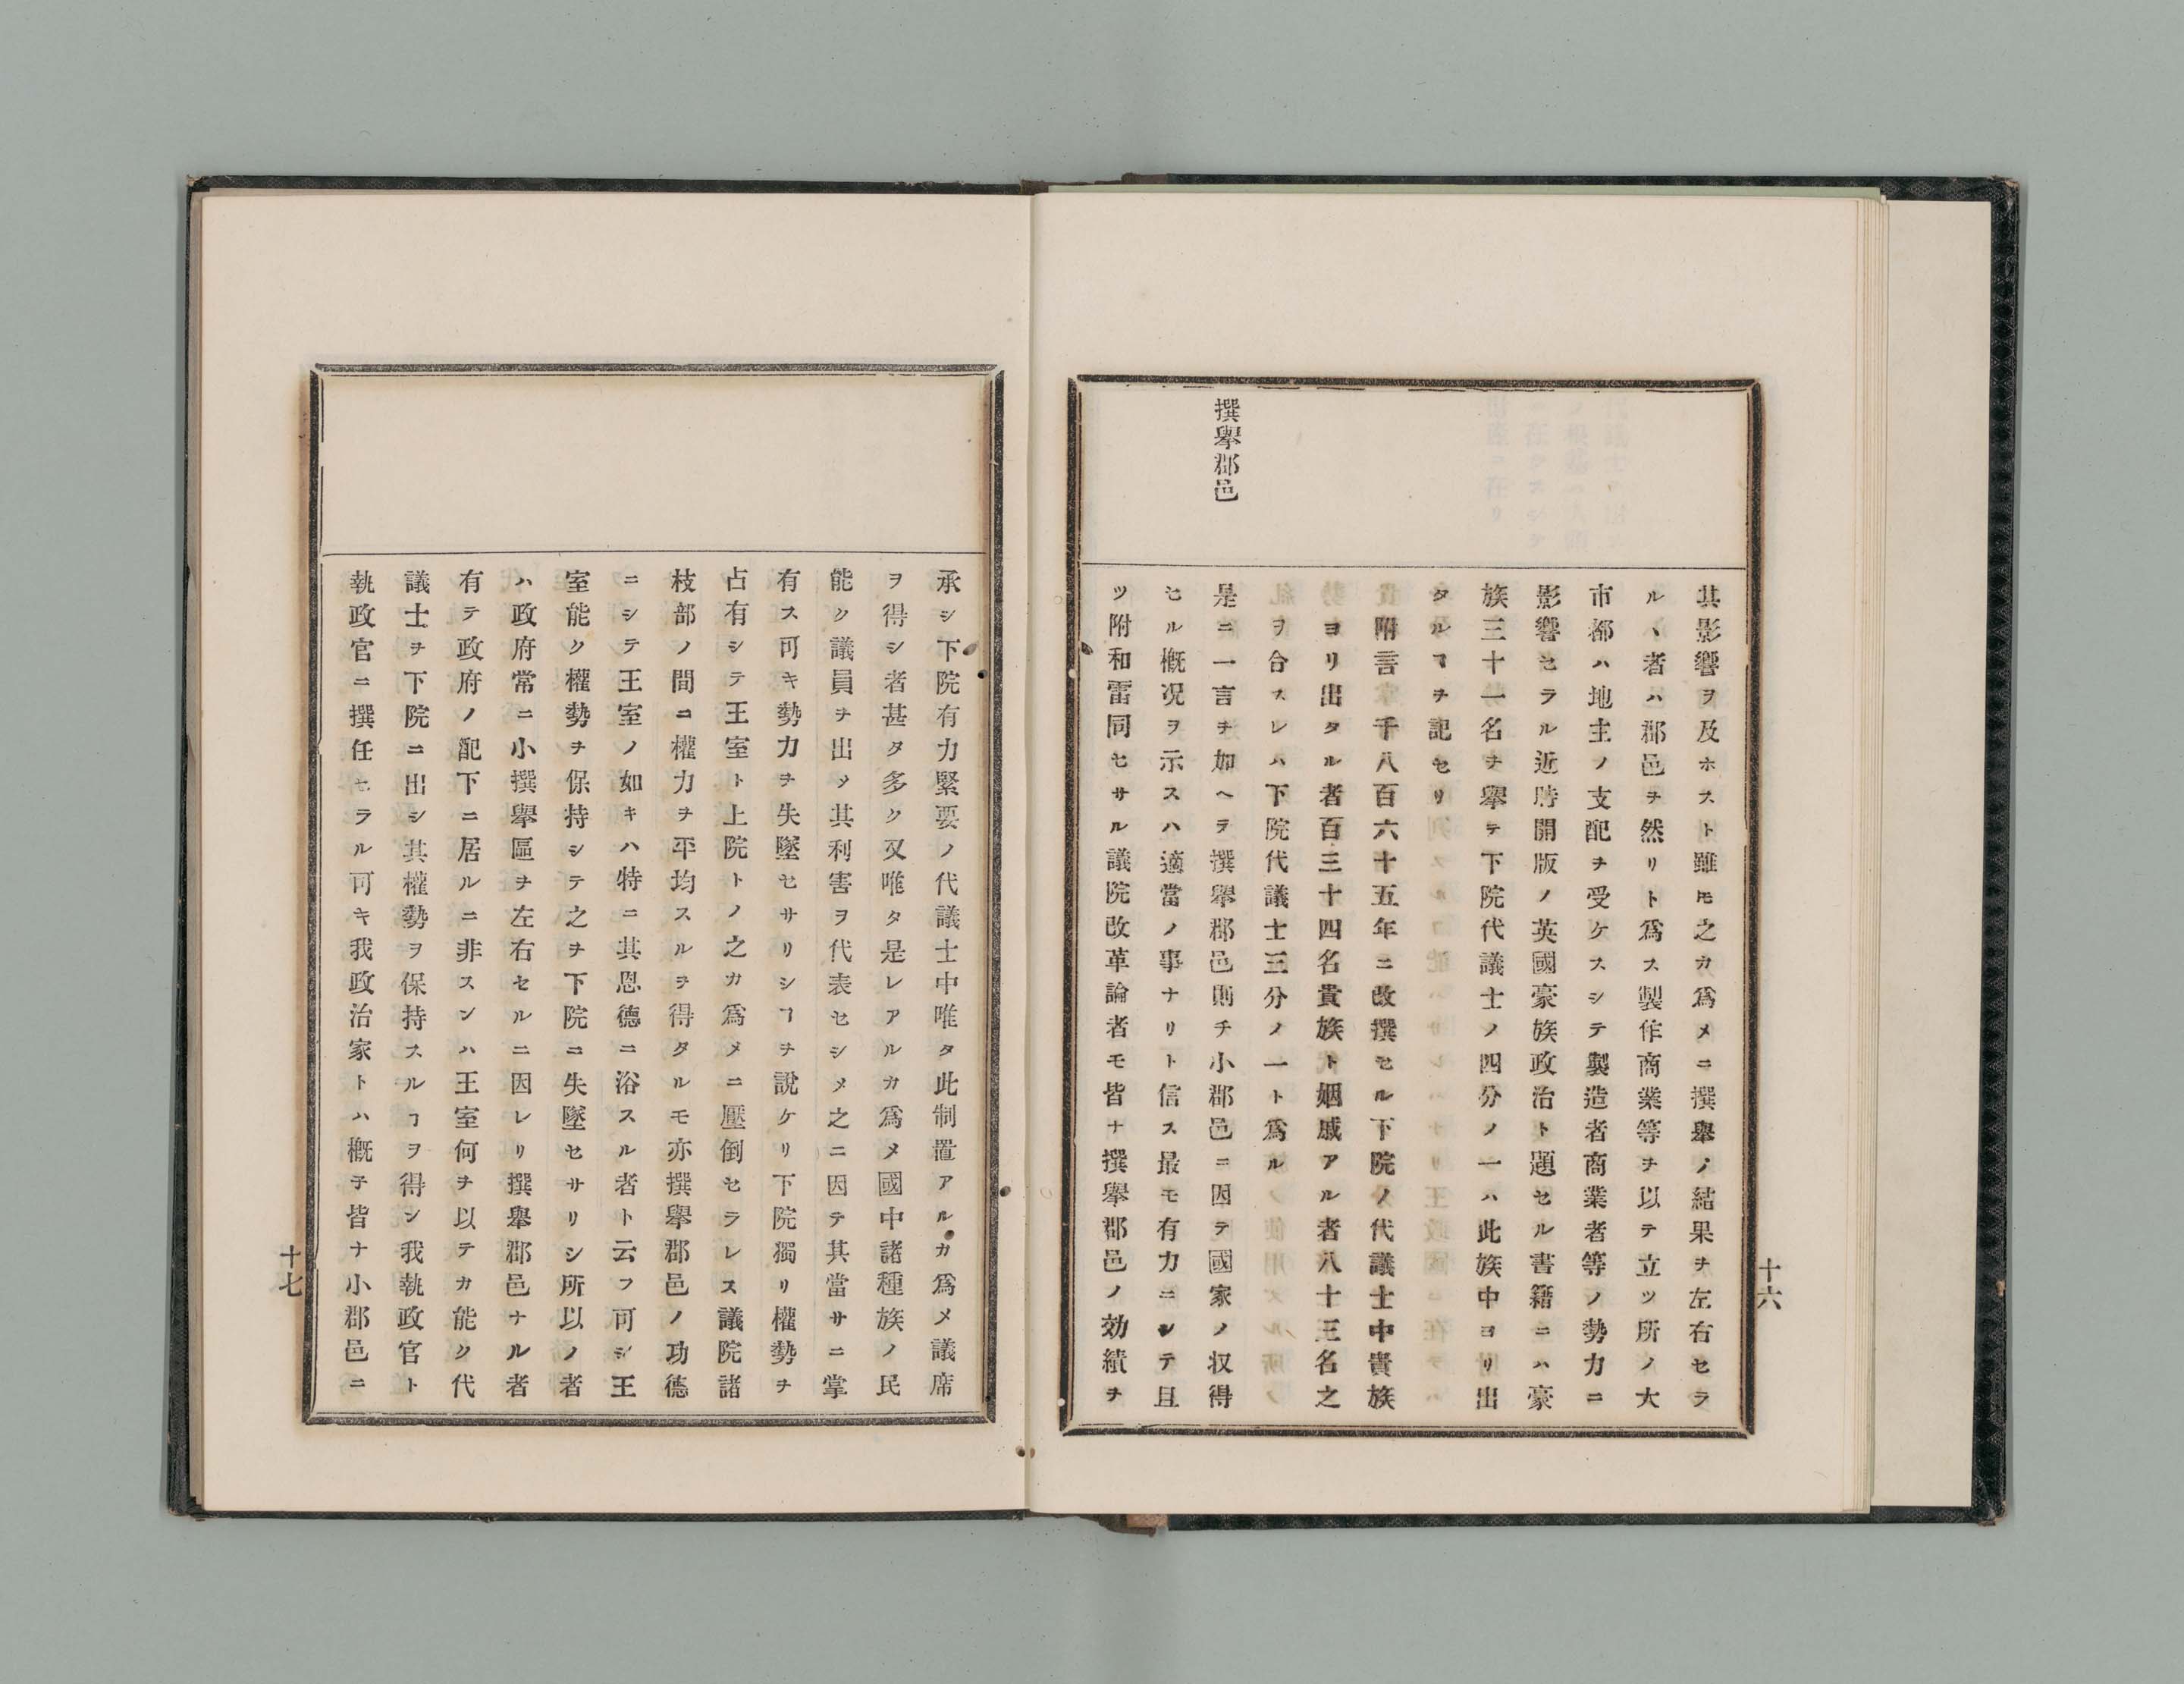 撰擧郡邑
其影響ヲ及ホスト雖𪜈之カ爲メニ撰擧ノ結果ヲ左右セラ
ルヽ者ハ郡邑ヲ然リト爲ス製作商業等ヲ以テ立ツ所ノ大
市都ハ地主ノ支配ヲ受ケスシテ製造者商業者等ノ勢力ニ
影響セラル近時開版ノ英國豪族政治ト題セル書籍ニハ豪
族三十一名ヲ擧テ下院代議士ノ四分ノ一ハ此族中ヨリ出
タルヿヲ記セリ
附言千八百六十五年ニ改撰セル下院ノ代議士中貴族
ヨリ出タル者百三十四名貴族ト姻戚アル者八十三名之
ヲ合スレハ下院代議士三分ノ一ト爲ル
是ニ一言ヲ加ヘテ撰擧郡邑則チ小郡邑ニ因テ國家ノ収得
セル概況ヲ示スハ適當ノ事ナリト信ス最モ有力ニシテ且
ツ附和雷同セサル議院改革論者モ皆ナ撰擧郡邑ノ効績ヲ
十六
承シ下院有力緊要ノ代議士中唯タ此制置アルカ爲メ議席
ヲ得シ者甚タ多ク又唯タ是レアルカ爲メ國中諸種族ノ民
能ク議員ヲ出シ其利害ヲ代表セシメ之ニ因テ其當サニ掌
有ス可キ勢力ヲ失墜セサリシヿヲ說ケリ下院獨リ權勢ヲ
占有シテ王室ト上院トノ之カ爲メニ壓倒セラレス議院諸
枝部ノ間ニ權力ヲ平均スルヲ得タルモ亦撰擧郡邑ノ功德
ニシテ王室ノ如キハ特ニ其恩德ニ浴スル者ト云フ可シ王
室能ク權勢ヲ保持シテ之ヲ下院ニ失墜セサリシ所以ノ者
ハ政府常ニ小撰擧區ヲ左右セルニ因レリ撰擧郡邑ナル者
有テ政府ノ配下ニ居ルニ非スンハ王室何ヲ以テカ能ク代
議士ヲ下院ニ出シ其權勢ヲ保持スルヿヲ得ン我執政官ト
執政官ニ撰任セラル可キ我政治家トハ概子皆ナ小郡邑ニ
十七